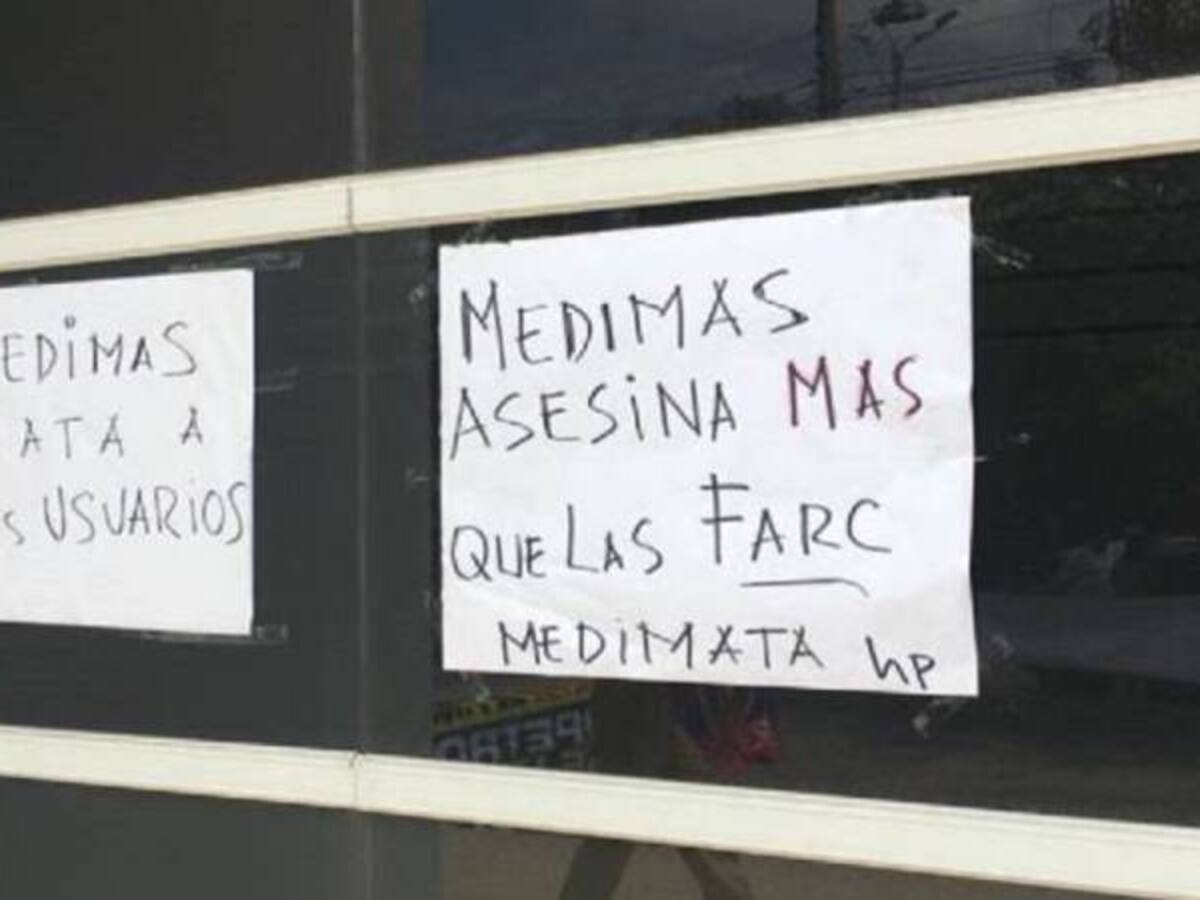 EDIMAS
ATA A
S USUARIOS
MEDIMAS
ASESINA MAS
QUE LAS FARC
MEDIMATA hp